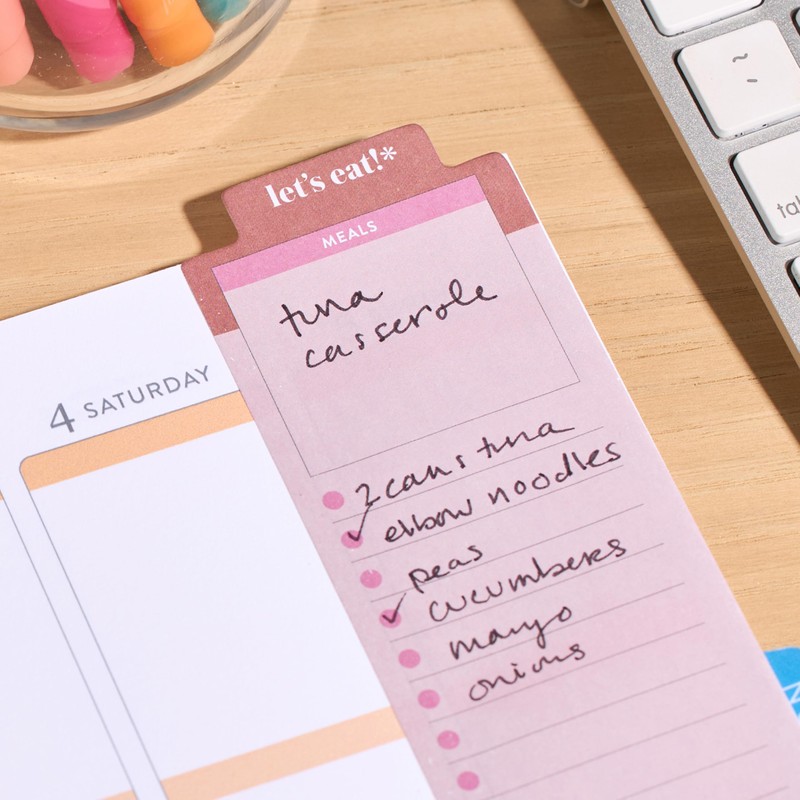 let's eat!*
MEALS
tuna
casserole
4 SATURDAY
2 cans tuna
elbow noodles
peas
cucumbers
mayo
onions
~
`